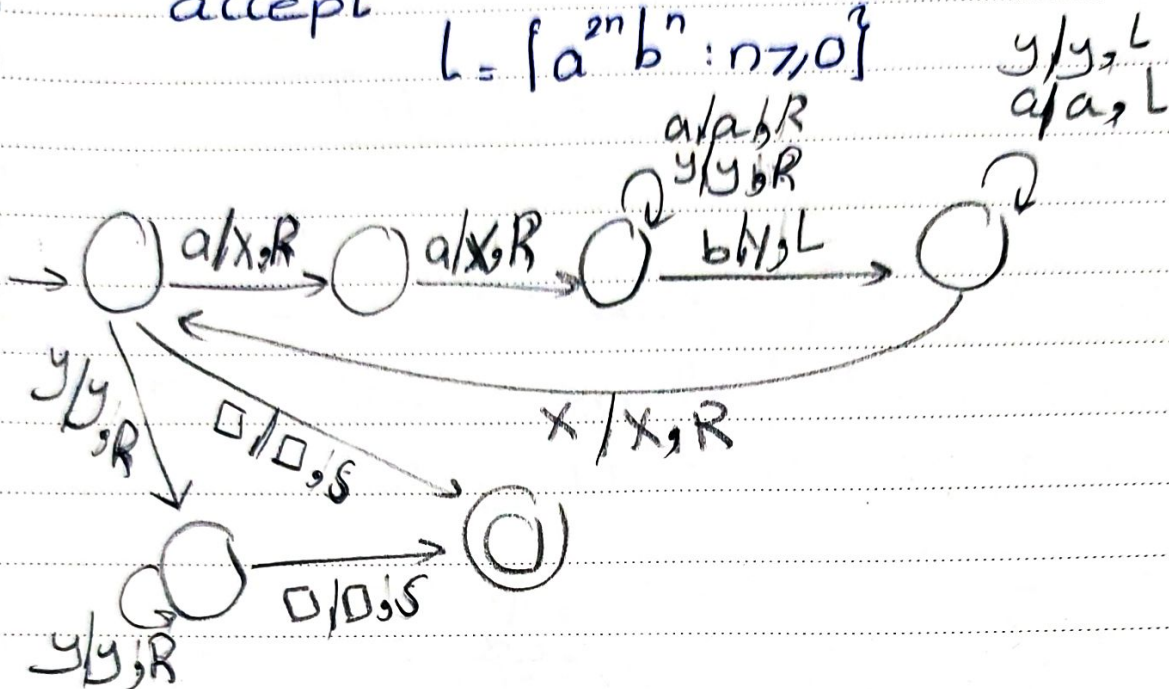 accept
L = {a²ⁿ bⁿ : n≥0}
y/y, L
a/a, L
a/a, R
y/y, R
a/x, R
a/x, R
b/y, L
y/y, R
□/□, S
x/x, R
□/□, S
y/y, R